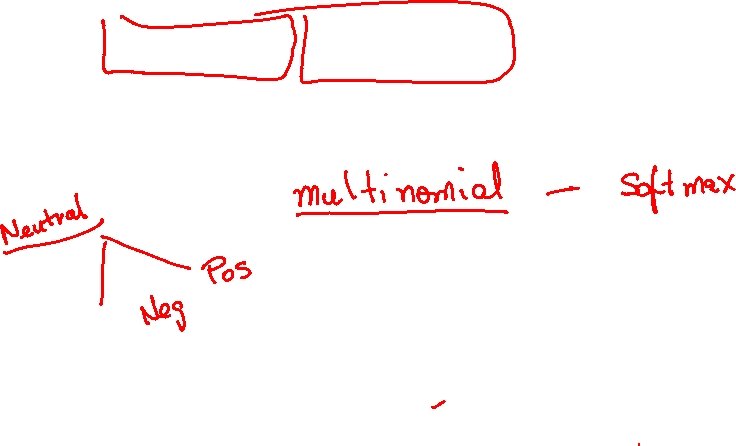 multinomial — Softmax
Neutral
Pos
Neg